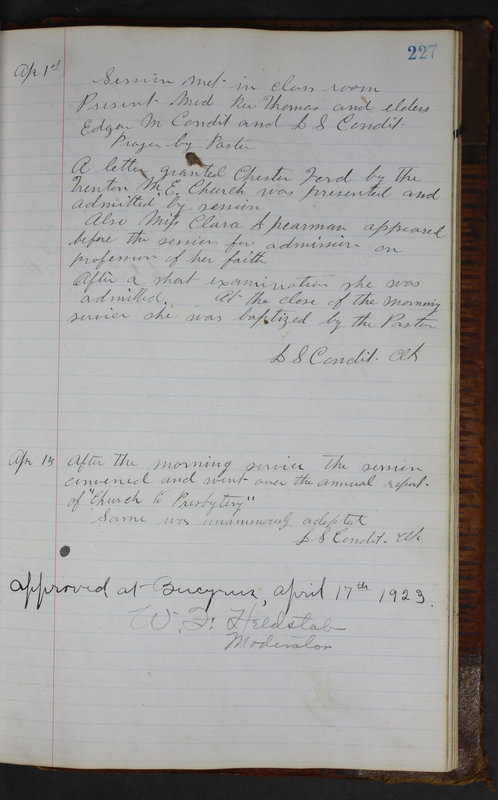 227
Apr 1st
Session met in class room
Present Mod Rev Thomas and elders
Edgar M Condit and L S Condit
Prayer by Pastor
A letter granted Chester Ford by the
Trenton M.E. Church was presented and
admitted by session
Also Miss Clara Spearman appeared
before the session for admission on
profession of her faith
After a short examination she was
admitted. At the close of the morning
service she was baptized by the Pastor
L S Condit Clk
Apr 15 After the morning service the session
convened and went over the annual report
of "Church to Presbytery"
Same was unanimously adopted
L S Condit Clk
Approved at Bucyrus, April 17th 1923.
W. F. Heldstab
Moderator